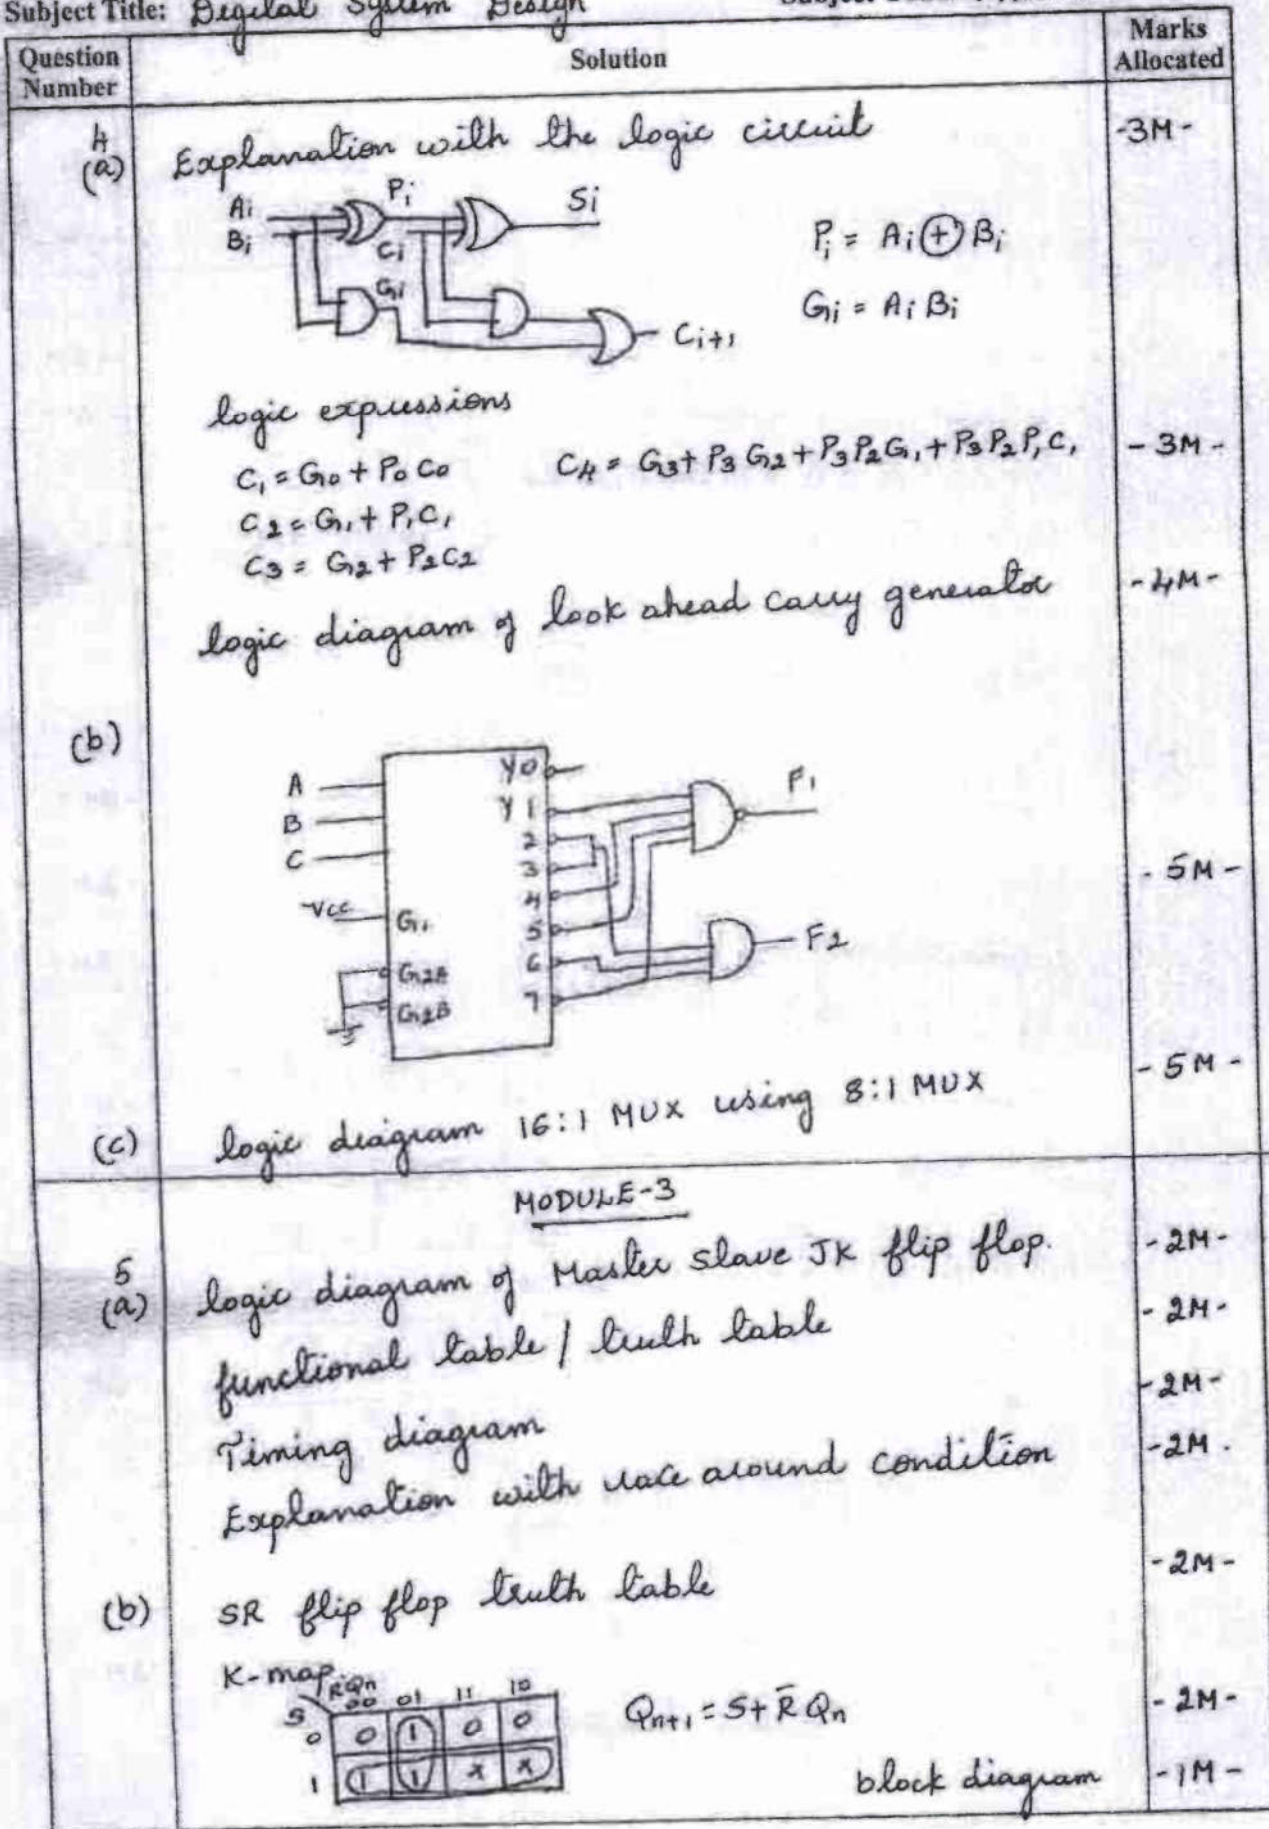 Subject Title: Digital System Design
Question Number
Solution
Marks Allocated
4 (a) Explanation with the logic circuit -3M-
Ai Pi Si
Bi Ci Pi = Ai ⊕ Bi
Gi Gi = AiBi
Ci+1
logic expressions
C1 = G0 + P0 C0 C4 = G3 + P3 G2 + P3P2G1 + P3P2P1C1 -3M-
C2 = G1 + P1C1
C3 = G2 + P2C2
logic diagram of look ahead carry generator -4M-
(b)
A Y0
B Y1 F1
C 2
3
4 -5M-
Vcc G1 5
G2A 6 F2
G2B 7
(c) logic diagram 16:1 MUX using 8:1 MUX -5M-
MODULE-3
5 (a) logic diagram of Master slave JK flip flop. -2M-
functional table / truth table -2M-
Timing diagram -2M-
Explanation with race around condition -2M.
(b) SR flip flop truth table -2M-
K-map RQn
S 00 01 11 10
0 0 1 0 0 Qn+1 = S + R̄ Qn -2M-
1 1 1 x x
block diagram -1M-